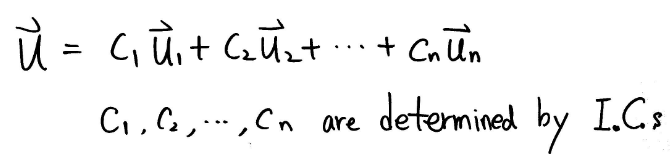 $\vec{u} = c_1 \vec{u}_1 + c_2 \vec{u}_2 + \cdots + c_n \vec{u}_n$
$c_1, c_2, \cdots, c_n$ are determined by I.C.s